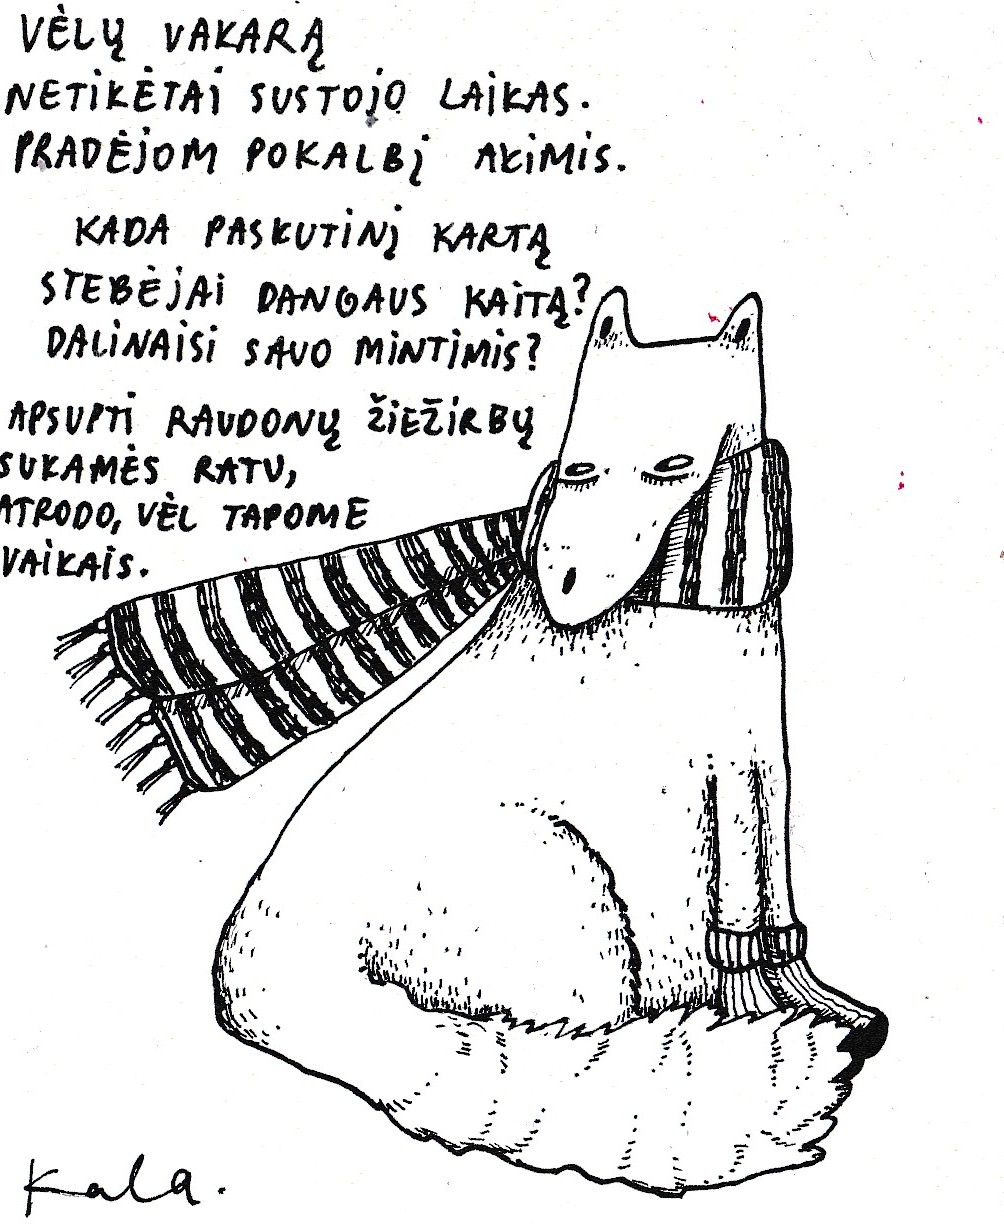 VĖLŲ VAKARĄ
NETIKĖTAI SUSTOJO LAIKAS.
PRADĖJOM POKALBĮ AKIMIS.
KADA PASKUTINĮ KARTĄ
STEBĖJAI DANGAUS KAITĄ?
DALINAISI SAVO MINTIMIS?
APSUPTI RAUDONŲ ŽIEŽIRBŲ
SUKAMĖS RATU,
ATRODO, VĖL TAPOME
VAIKAIS.
Kala.